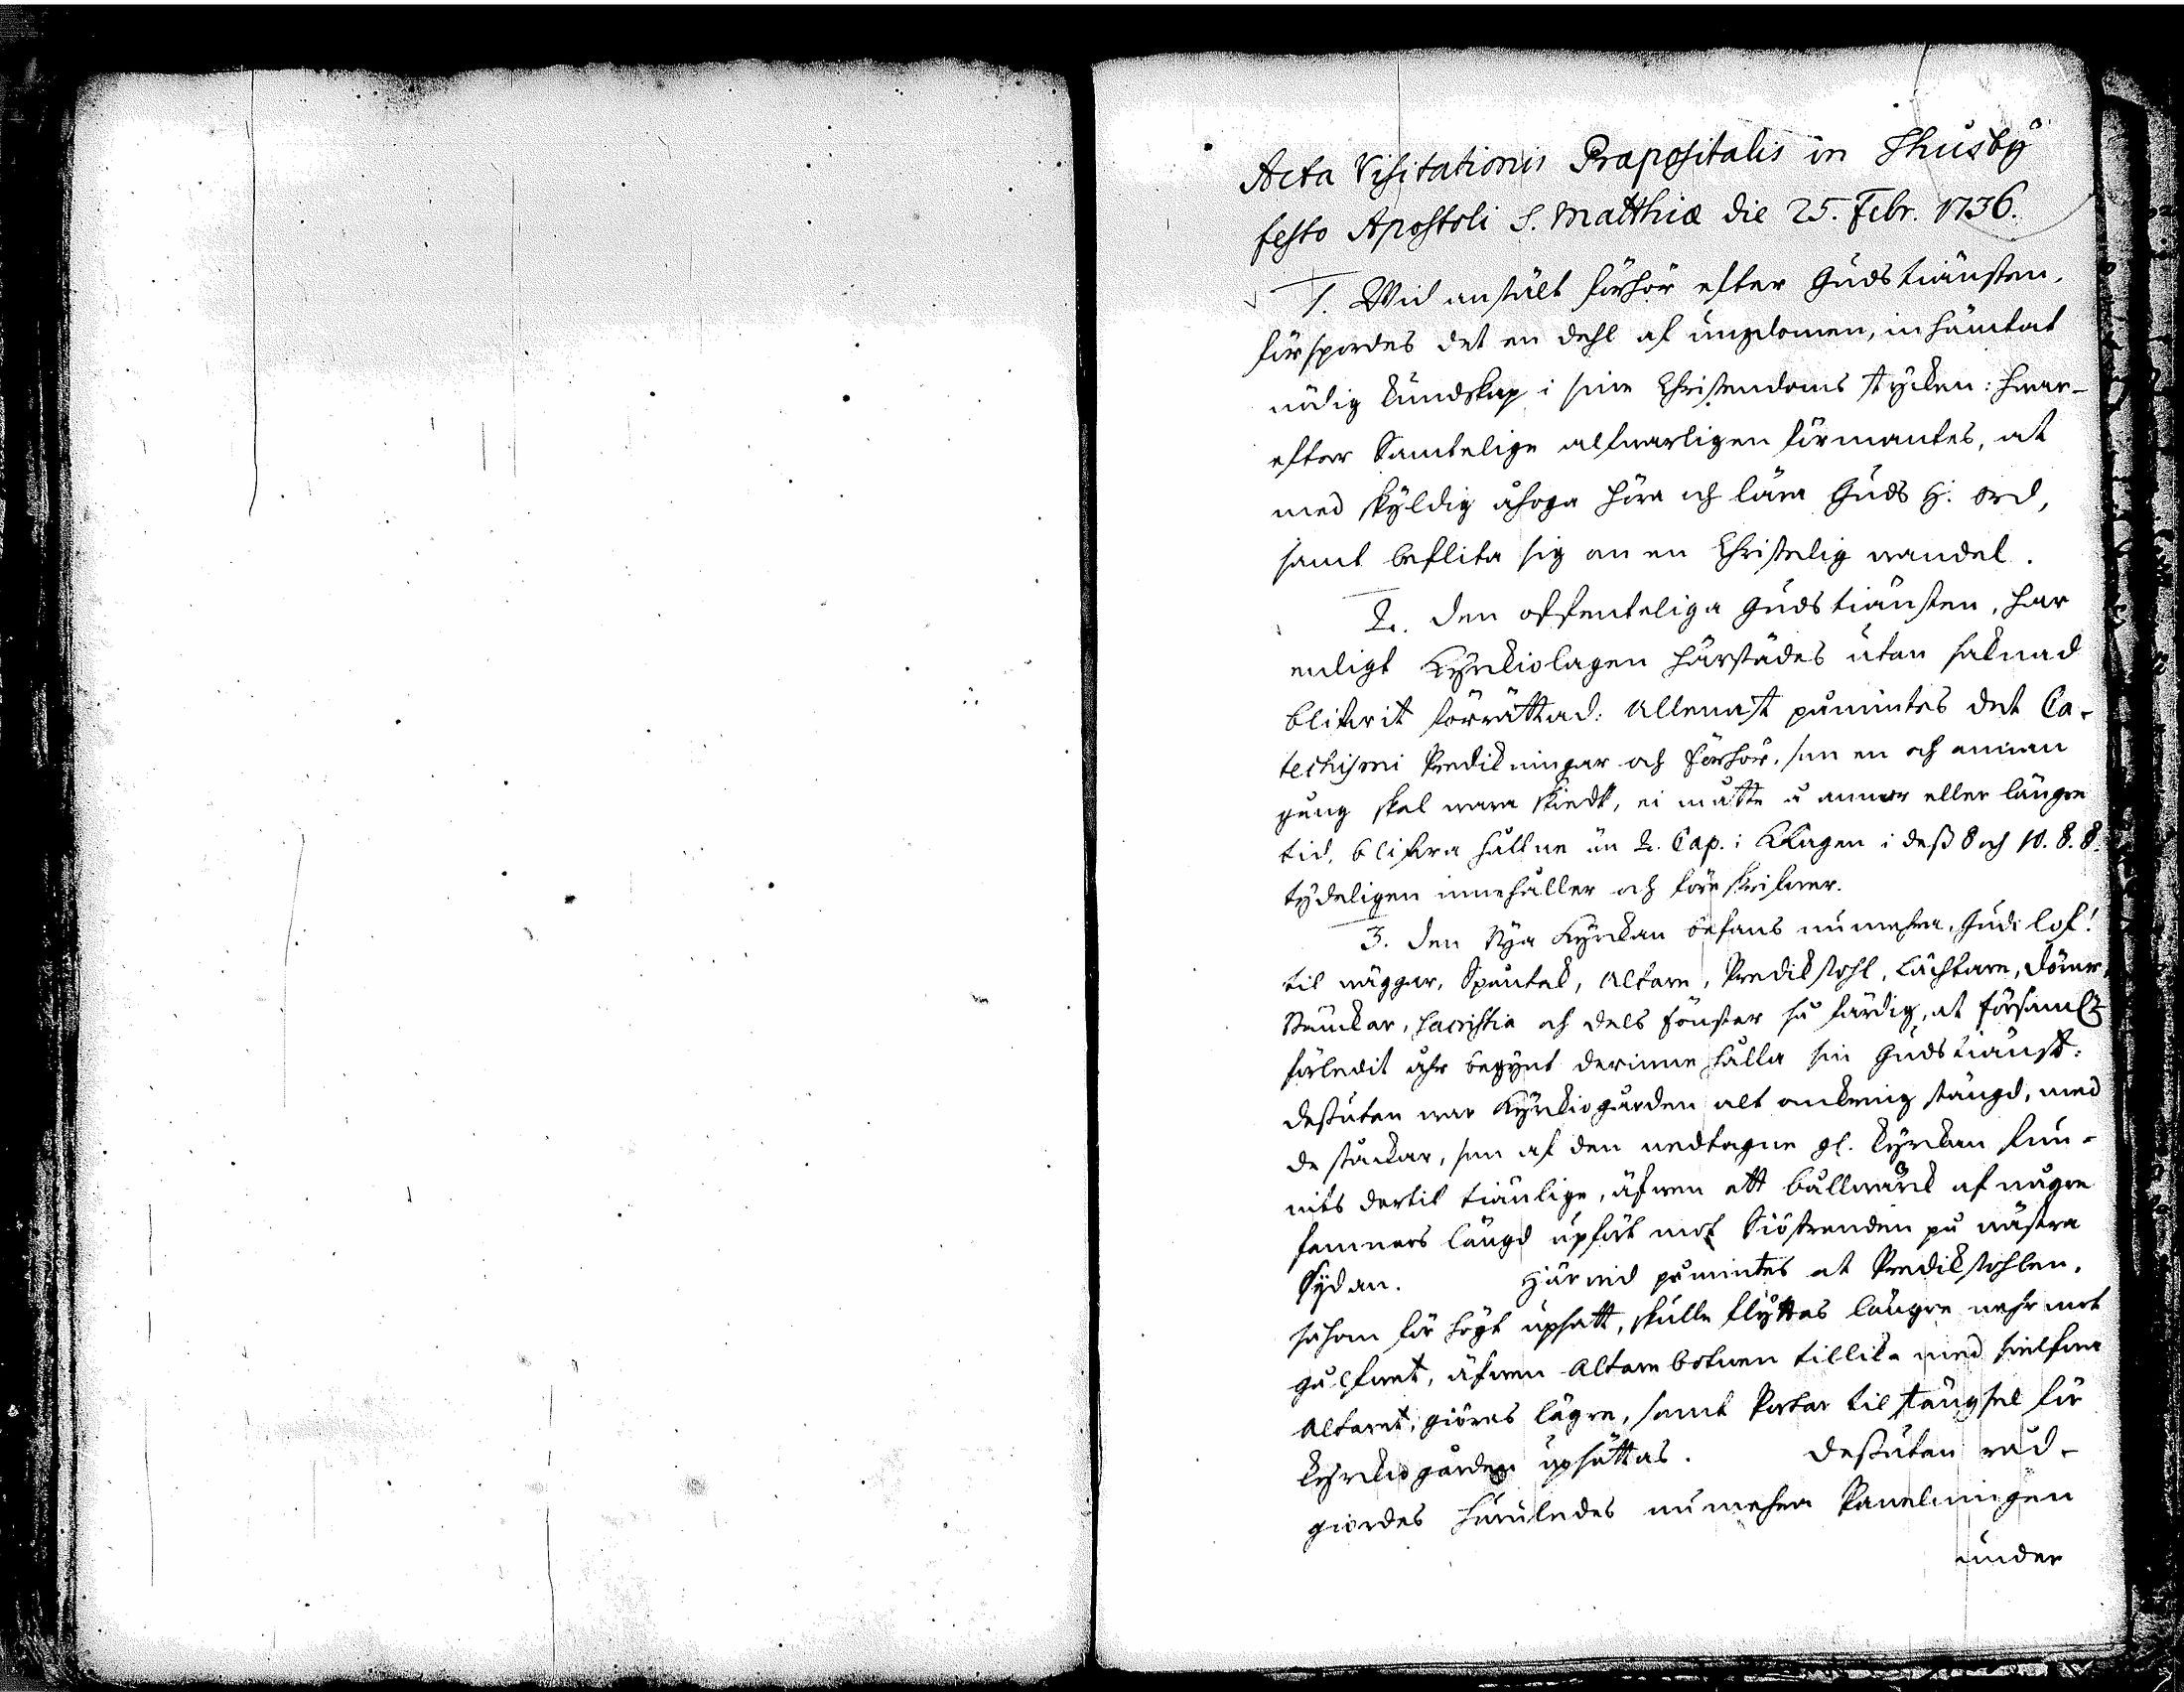 Acta Visitationis Præpositalis in Thusby
festo Apostoli S. Matthiæ die 25. Febr. 1736.
1. Wid anstält förhör efter Gudstiänsten,
förspordes det en dehl af ungdomen, inhämtat
nödig kundskap i sine Christendoms stycken: hwar-
efter Samtelige alfwarligen förmantes, at
med skyldig åhoga höra och lära Guds H. ord,
samt beflita sig om en Christelig wandel.
2. Den offenteliga Gudstiänsten, har
enligt Kyrkiolagen härstädes utan saknad
blifwit förrättad: Allenast påmintes det Ca-
techismi Predikningar och förhör, som en och annan
gång skal wara skiedt, ei måtte å annor eller längre
tid, blifwa hållne än 2. Cap. i KLagen i dess 8 och 10. §.§.
tydeligen innehåller och föreskrifwer.
3. Den Nya Kyrckan befans numehra, Gudi lof!
til wäggar, Spåntak, Altare, Predikstohl, Lächtare, dörar,
Bänckar, sacristia och dels fönster så färdig, at församl:n
förledit åhr begynt derinne hålla sin Gudstiänst:
dessutan war Kyrkiogården alt omkring stängd, med
de stockar, som af den nedtagne gl. kyrckan fun-
nits dertil tiänlige, äfwen ett bållwärck af någre
famnars längd upfört mot Siöstranden på wästra
Sydan. Härwid påmintes at Predikstohlen,
såsom för högt upsatt, skulle flyttas längre nehr mot
gålfwet, äfwen Altare botnen tillika med sielfwa
Altaret, giöras lägre, samt Portar til stängsel för
Kyrkiogården upsättas. Dessutan råd-
giordes huruledes numehra Panelningen
under